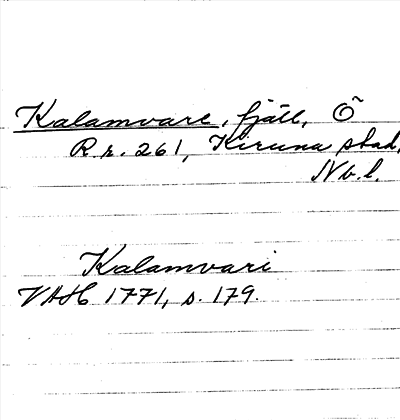 Kalamvare, fjäll, Ö
R.r. 261, Kiruna stad,
Nb.l.
Kalamvari
VAH 1771, s. 179.